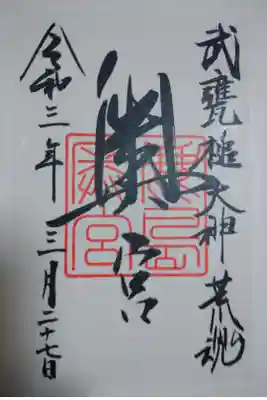 武甕槌大神荒魂
奥宮
令和三年三月二十七日